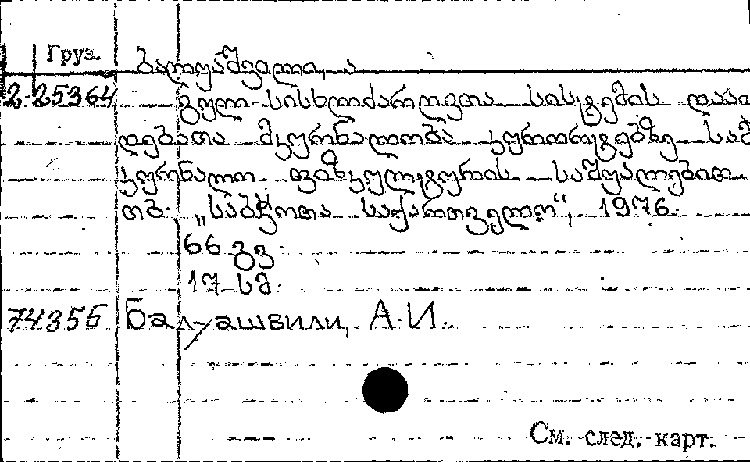 Груз.
ბალუაშვილი, ა
2-25364 გულ-სისხლძარღვთა სისტემის დაა
დებათა მკურნალობა კურორტებზე სამ
კურნალო ფიზკულტურის საშუალებით
თბ. „საბჭოთა საქართველო“, 1976.
66 გვ.
17 სმ.
74356 Балуашвили, А.И.
См. след. карт.